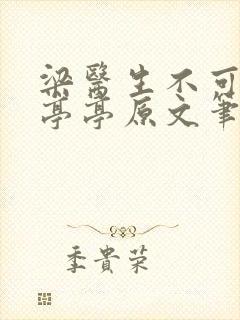 梁醫生不可
亭亭原文筆
季貴荣